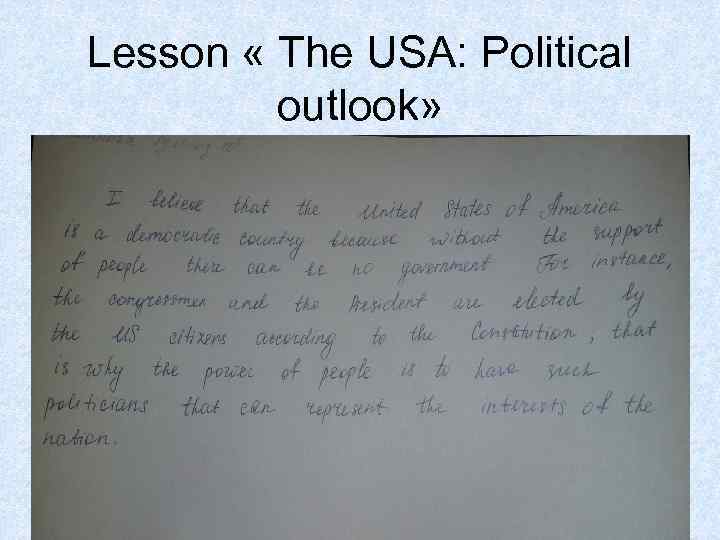 Lesson « The USA: Political
outlook»
I believe that the United States of America
is a democratic country because without the support
of people there can be no government. For instance,
the congressmen and the President are elected by
the US citizens according to the Constitution, that
is why the power of people is to have such
politicians that can represent the interests of the
nation.